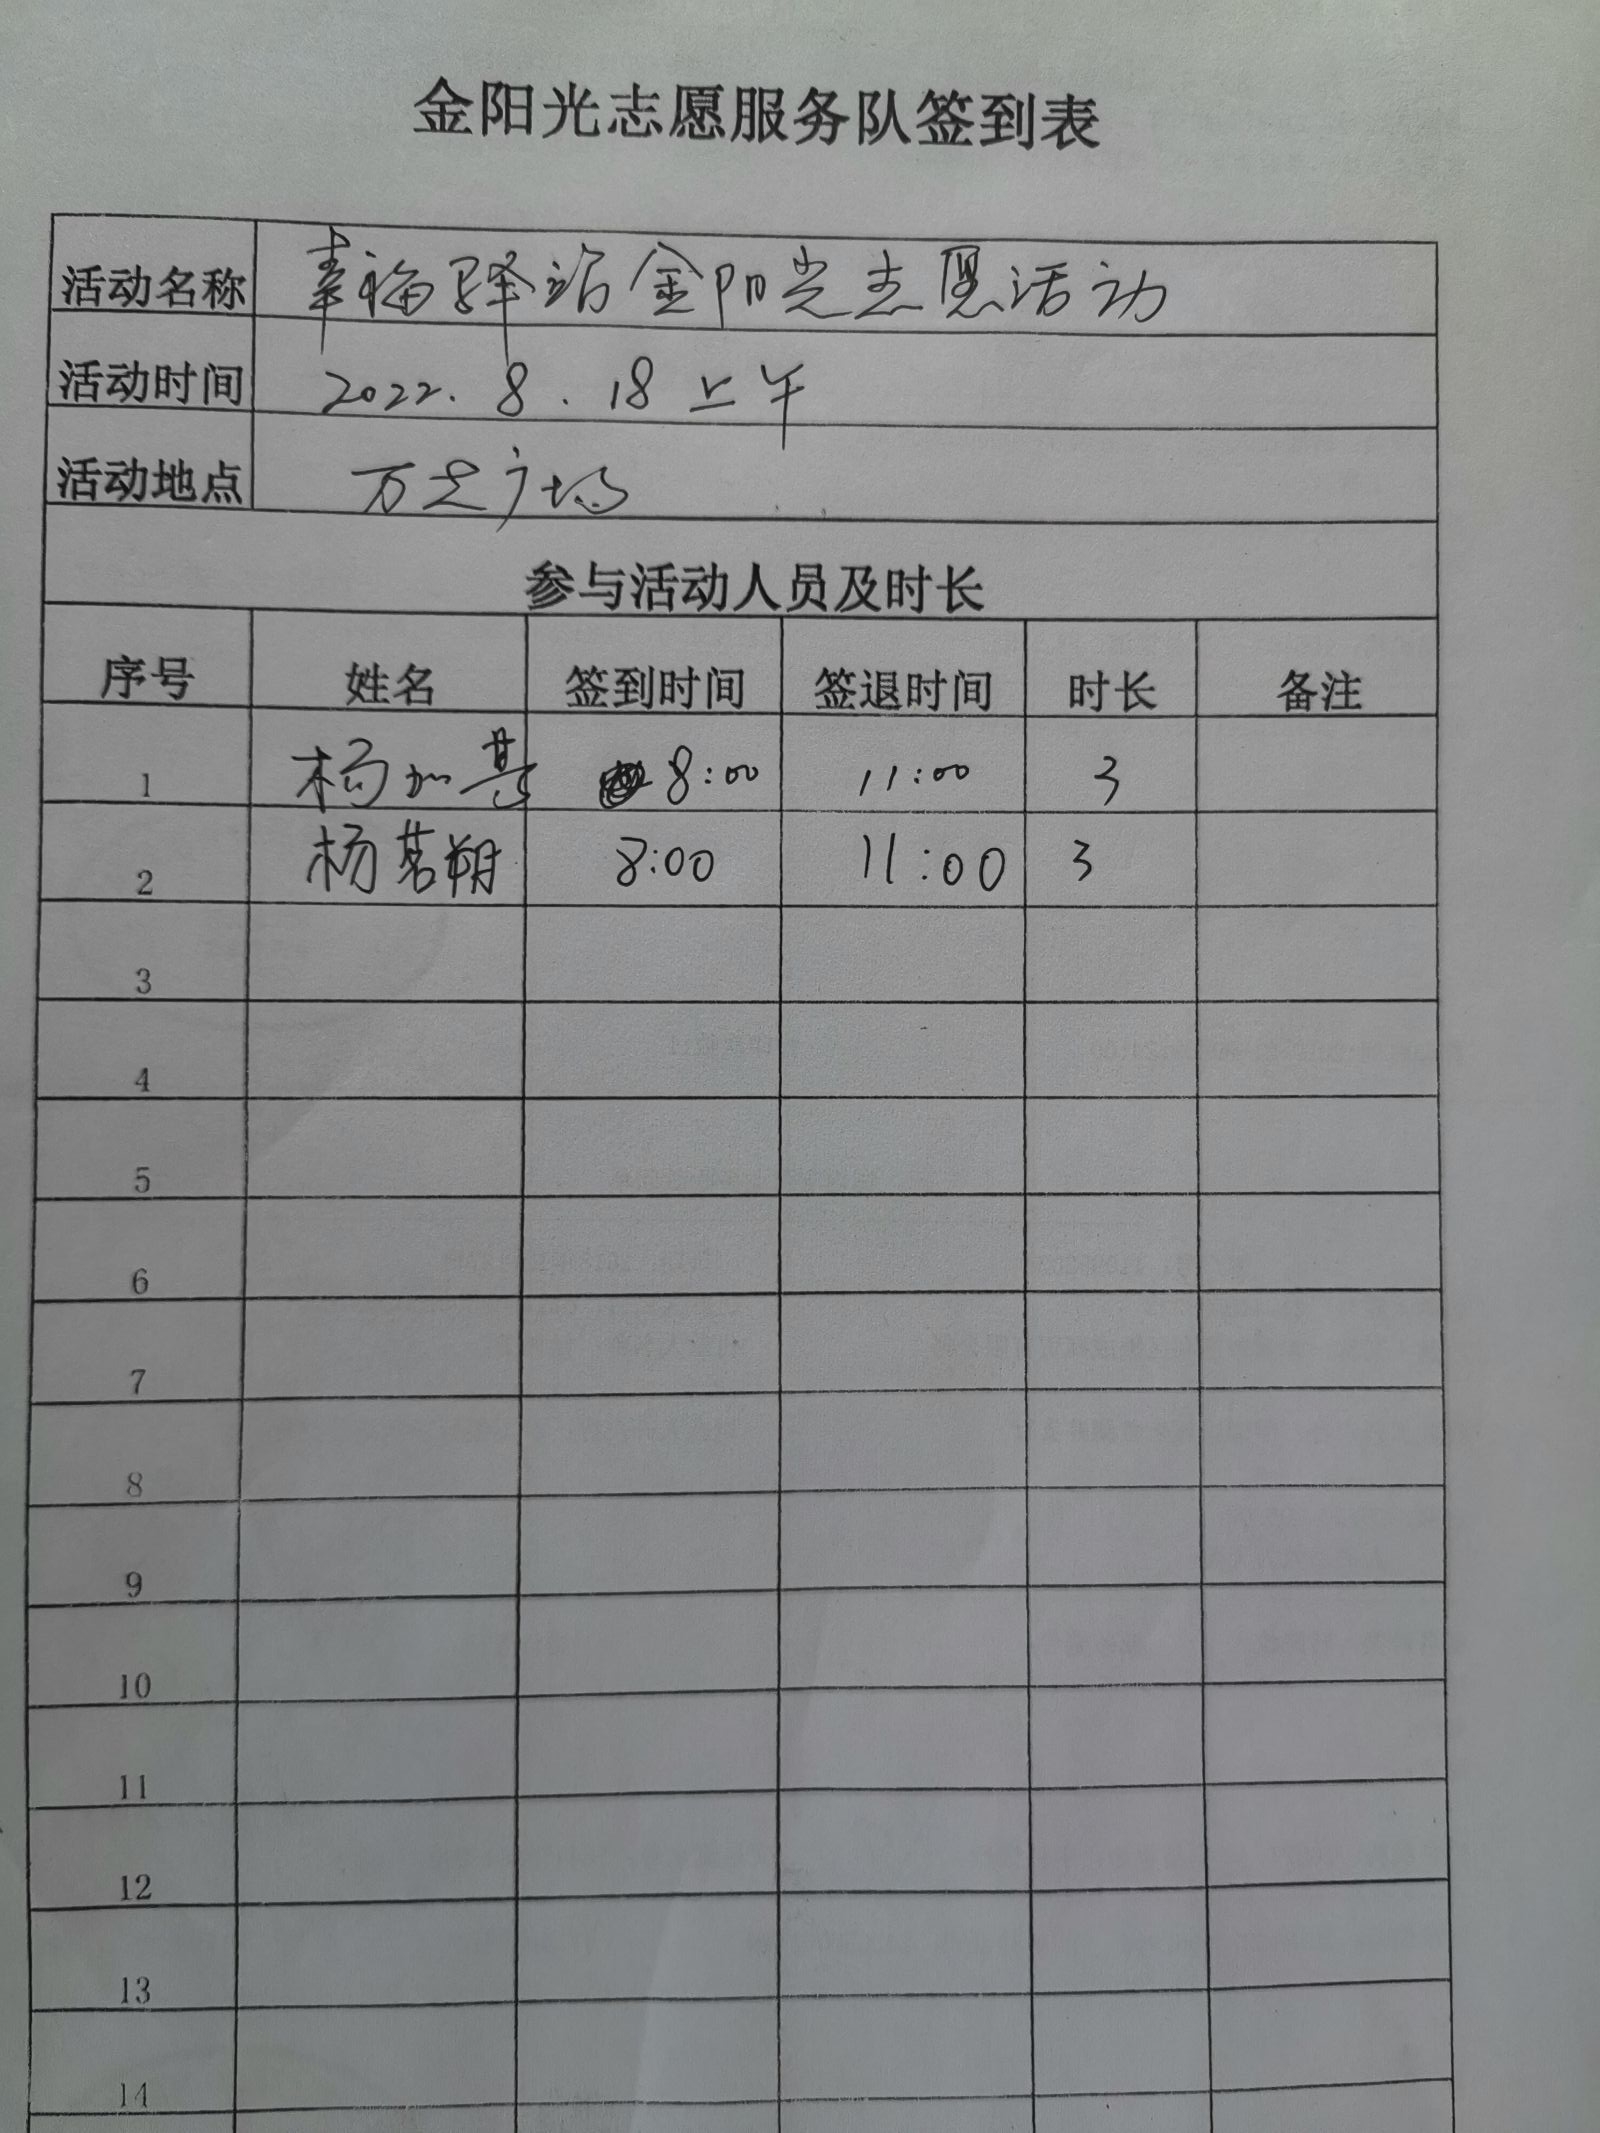 金阳光志愿服务队签到表
活动名称 幸福驿站金阳光志愿活动
活动时间 2022.8.18上午
活动地点 万达广场
参与活动人员及时长
序号 姓名 签到时间 签退时间 时长 备注
1 杨加 8:00 11:00 3
2 杨茗朔 8:00 11:00 3
3
4
5
6
7
8
9
10
11
12
13
14